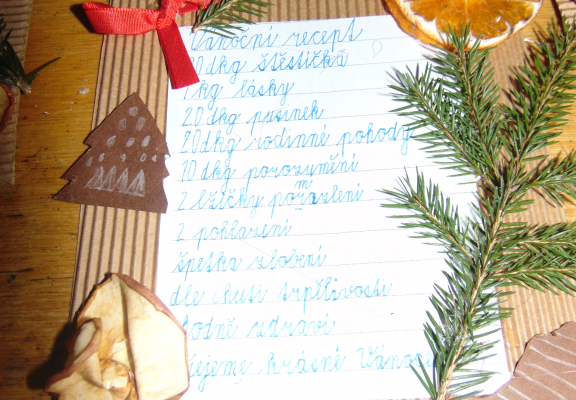 Vánoční recept
10 dkg štěstíčka
1 kg lásky
20 dkg pusinek
20 dkg rodinné pohody
10 dkg porozumění
2 lžičky pomazlení
2 pohlazení
špetka zlobení
dle chuti trpělivosti
hodně zdraví
krásné Vánoce